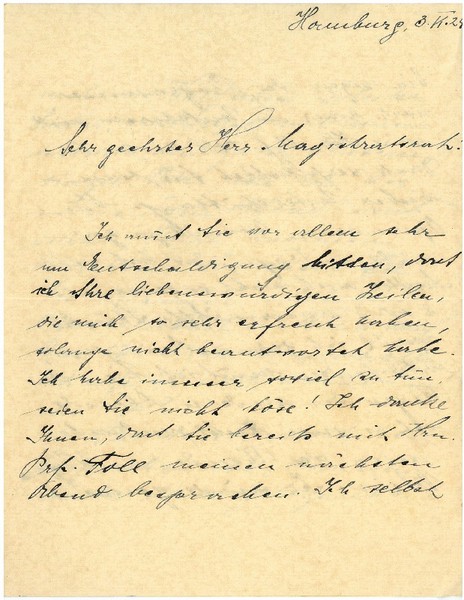 Hamburg, 3.XI.24
Sehr geehrter Herr Magistratsrat!
Ich muß Sie vor allem sehr
um Entschuldigung bitten, daß
ich Ihre liebenswürdigen Zeilen,
die mich so sehr erfreut haben,
solange nicht beantwortet habe.
Ich habe immer soviel zu tun,
seien Sie nicht böse! Ich danke
Ihnen, daß Sie bereits mit Hrn.
Prf. Foll meinen nächsten
Abend besprachen. Ich selbst